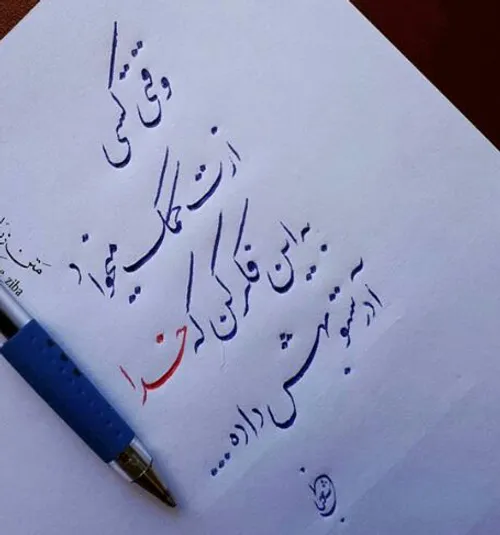 وقتی کسی
ازت کمک میخواد
به این فکر کن که خدا
آدرستو بهش داده...
متن زیبا
ziba